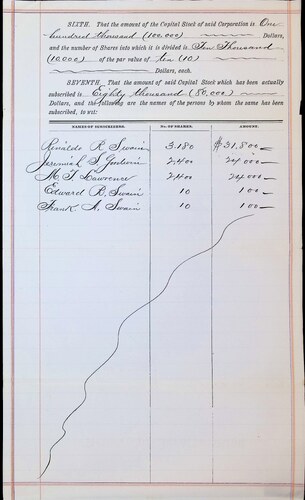 SIXTH. That the amount of the Capital Stock of said Corporation is One
hundred thousand (100,000) Dollars,
and the number of Shares into which it is divided is Ten Thousand
(10,000) of the par value of ten (10)
Dollars, each.
SEVENTH. That the amount of said Capital Stock which has been actually
subscribed is Eighty thousand (80,000)
Dollars, and the following are the names of the persons by whom the same has been
subscribed, to wit:
NAMES OF SUBSCRIBERS. NO. OF SHARES. AMOUNT.
Rinaldo R Swain 3.180 $31,800—
Jeremiah S Goodwin 2,400 24 000—
M. T. Lawrence 2,400 24,000—
Edward B. Swain 10 100—
Frank A. Swain 10 100—